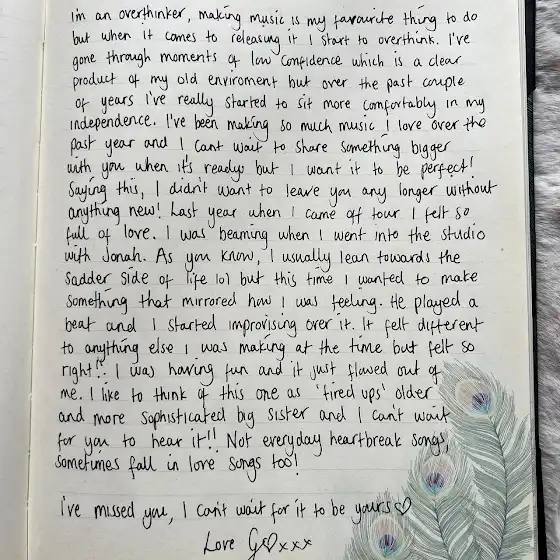 I'm an overthinker, making music is my favourite thing to do
but when it comes to releasing it I start to overthink. I've
gone through moments of low confidence which is a clear
product of my old enviroment but over the past couple
of years I've really started to sit more comfortably in my
independence. I've been making so much music I love over the
past year and I cant wait to share something bigger
with you when it's ready but I want it to be perfect!
Saying this, I didn't want to leave you any longer without
anything new! Last year when I came off tour I felt so
full of love. I was beaming when I went into the studio
with Jonah. As you know, I usually lean towards the
sadder side of life lol but this time I wanted to make
something that mirrored how I was feeling. He played a
beat and I started improvising over it. It felt different
to anything else I was making at the time but felt so
right!! I was having fun and it just flowed out of
me. I like to think of this one as 'tired ups' older
and more sophisticated big sister and I can't wait
for you to hear it!! Not everyday heartbreak songs,
sometimes fall in love songs too!
I've missed you, I can't wait for it to be yours♡
Love G♡xxx